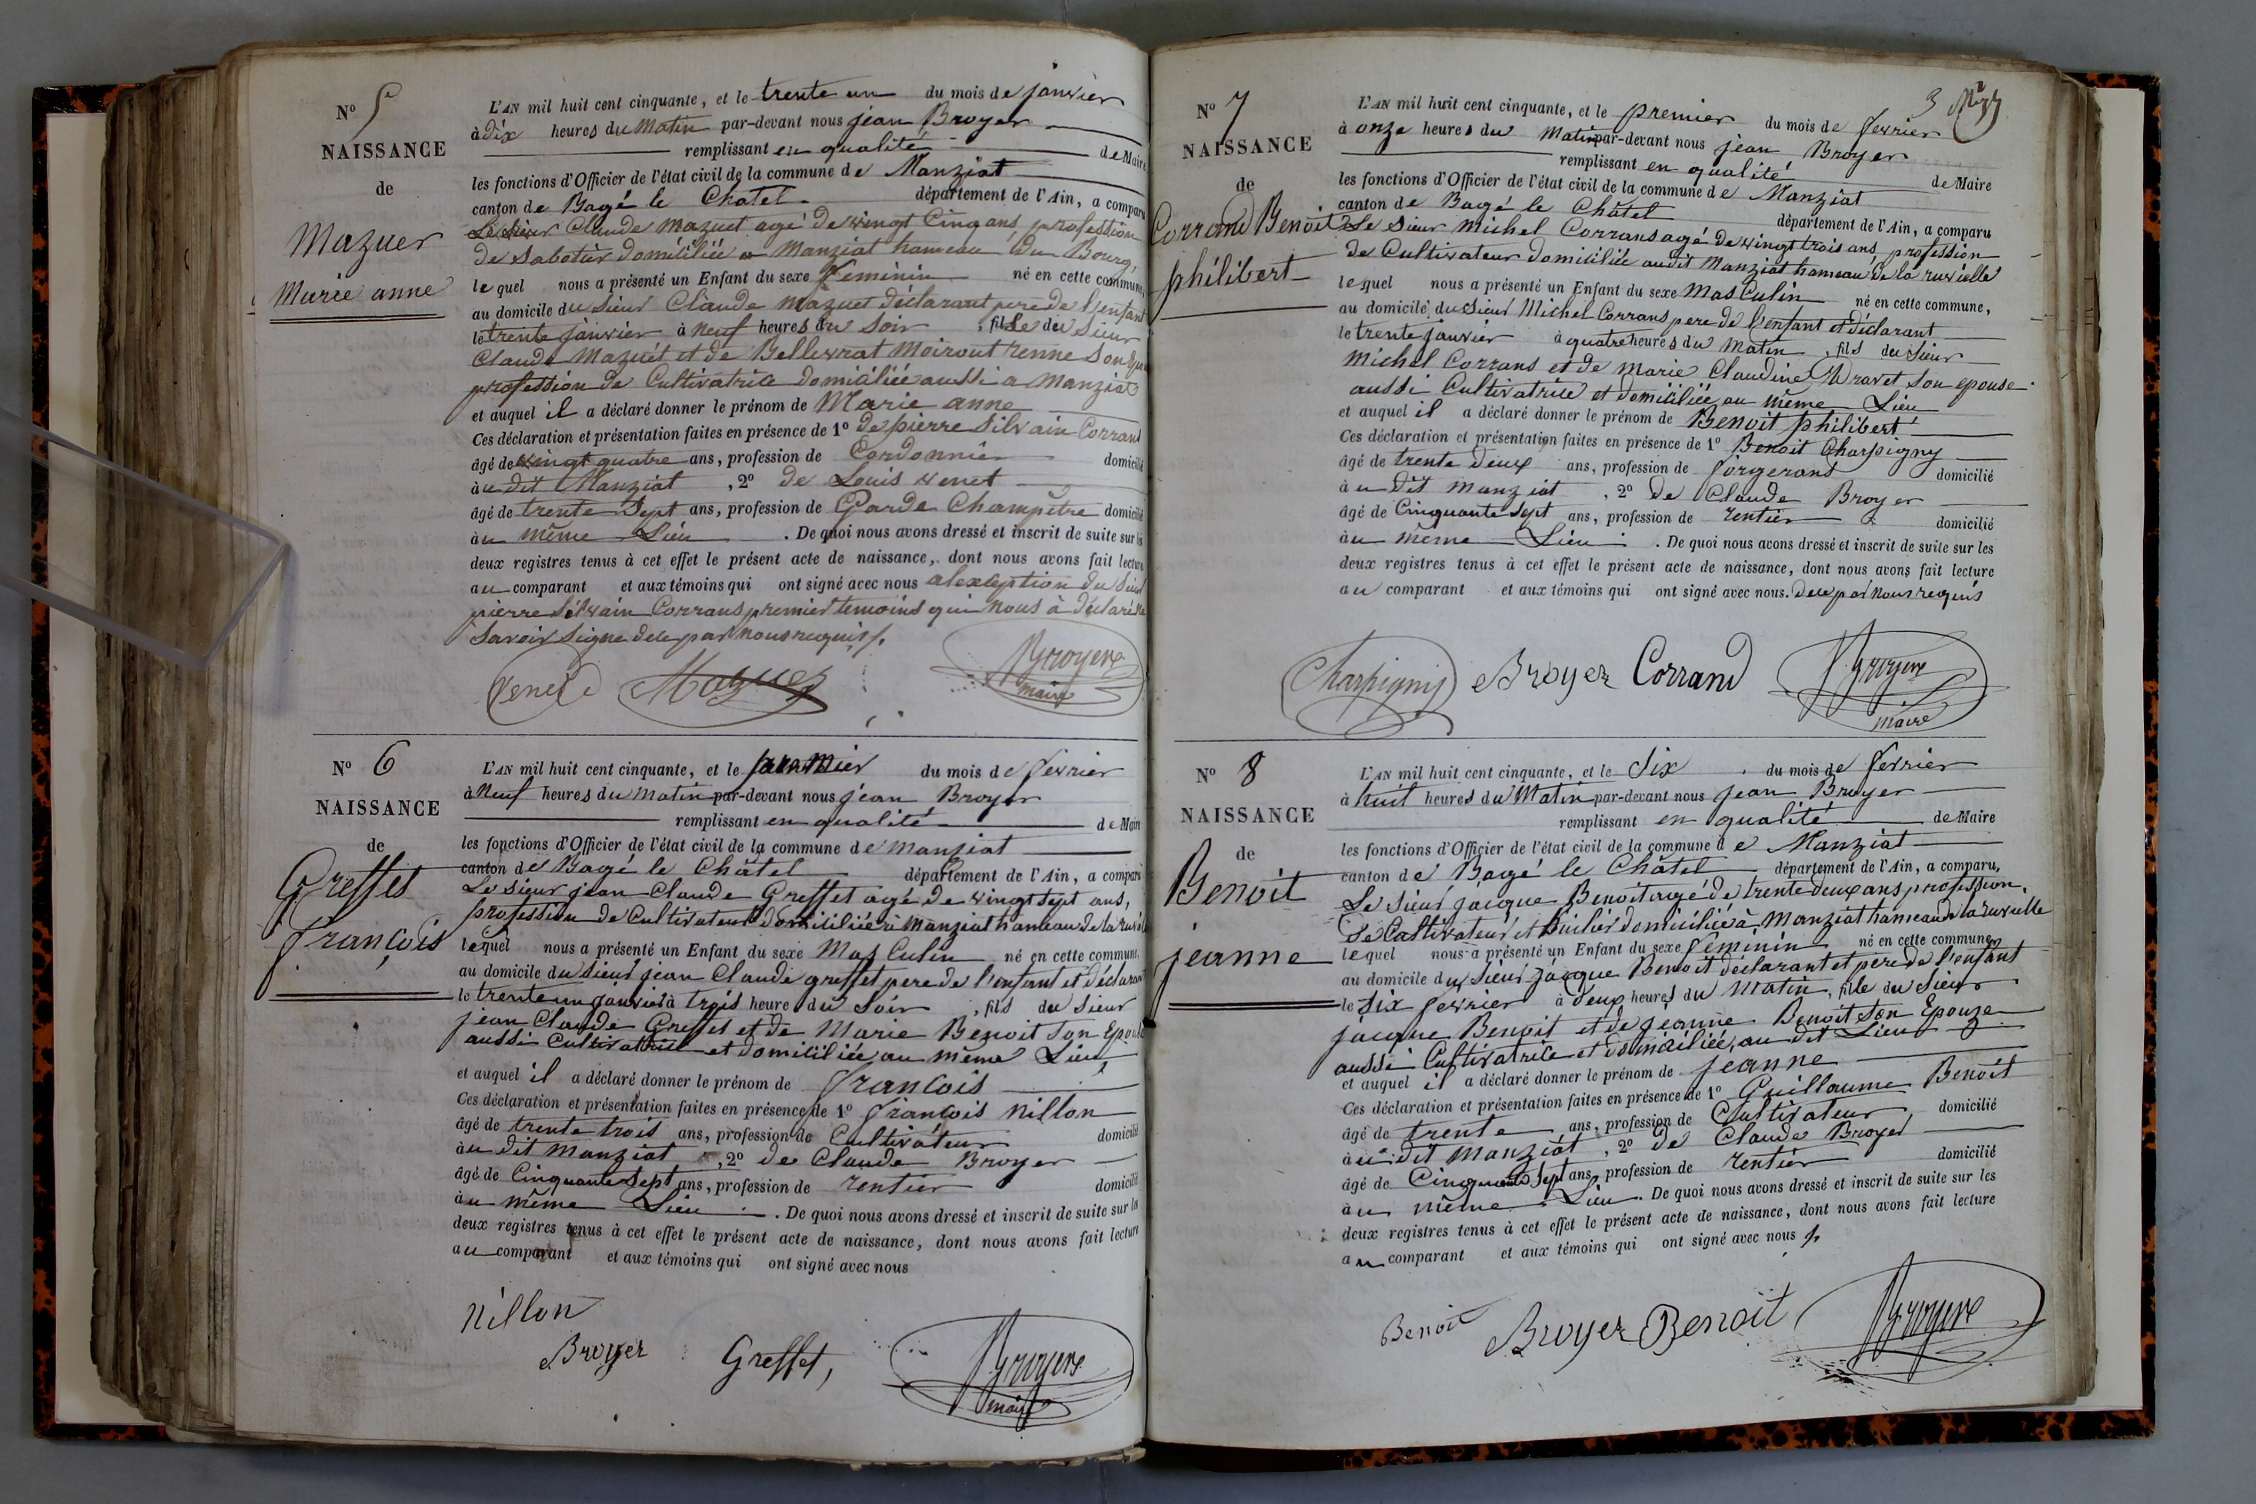 Nº 5
NAISSANCE
de
Mazuer
Marie anne
L'AN mil huit cent cinquante, et le trente un du mois de janvier
à dix heures du Matin par-devant nous jean Broyer
remplissant en qualité de Maire
les fonctions d'Officier de l'état civil de la commune de Manziat
canton de Bagé le Chatel département de l'Ain, a comparu
Le Sieur Claude Mazuet agé de vingt Cinq ans, profession
de Sabotier domiciliée a Manziat hameau du Bourg,
lequel nous a présenté un Enfant du sexe Feminin né en cette commune,
au domicile du Sieur Claude Mazuet déclarant pere de l'enfant
le trente janvier à Neuf heures du Soir , fille du Sieur
Claude Mazuet et de Bellevrat Moirout renne Son
profession de Cultivatrice domiciliée aussi a Manziat
et auquel il a déclaré donner le prénom de Marie anne
Ces déclaration et présentation faites en présence de 1º de pierre Silvain Corrans
âgé de vingt quatre ans, profession de Cordonnier domicilié
au dit Manziat , 2º de Louis venet
âgé de trente Sept ans, profession de Garde Champêtre domicilié
au même Lieu . De quoi nous avons dressé et inscrit de suite sur les
deux registres tenus à cet effet le présent acte de naissance, dont nous avons fait lecture
au comparant et aux témoins qui ont signé avec nous alexception du Sieur
pierre Silvain Corrans premier temoins qui nous à déclaré
Savoir Signe de ce par nous requis /.
Venet Mazuer Broyer
maire
Nº 6
NAISSANCE
de
Greffet
françois
L'AN mil huit cent cinquante, et le premier du mois de fevrier
à Neuf heures du Matin par-devant nous jean Broyer
remplissant en qualité de Maire
les fonctions d'Officier de l'état civil de la commune de Manziat
canton de Bagé le Châtel département de l'Ain, a comparu
Le Sieur jean Claude Greffet agé de vingt Sept ans,
profession de Cultivateur domiciliée à Manziat hameau de la
lequel nous a présenté un Enfant du sexe Masculin né en cette commune,
au domicile du Sieur jean Claude greffet pere de l'enfant et déclarant
le trente un janvier à trois heure du Soir , fils du Sieur
jean Claude Greffet et de Marie Benoit Son Epouse
aussi Cultivatrice et domiciliée au même Lieu
et auquel il a déclaré donner le prénom de françois
Ces déclaration et présentation faites en présence de 1º françois Nillon
âgé de trente trois ans, profession de Cultivateur domicilié
au dit Manziat , 2º de Claude Broyer
âgé de Cinquante Sept ans, profession de rentier domicilié
au même Lieu . De quoi nous avons dressé et inscrit de suite sur les
deux registres tenus à cet effet le présent acte de naissance, dont nous avons fait lecture
au comparant et aux témoins qui ont signé avec nous
Nillon
Broyer Greffet, Broyer
maire
3
Nº 7
NAISSANCE
de
Corrand Benoit
philibert
L'AN mil huit cent cinquante, et le premier du mois de fevrier
à onze heures du Matin par-devant nous jean Broyer
remplissant en qualité de Maire
les fonctions d'Officier de l'état civil de la commune de Manziat
canton de Bagé le Châtel département de l'Ain, a comparu
Le Sieur Michel Corrans agé de vingt trois ans, profession
de Cultivateur domiciliée audit Manziat hameau de la ruvielle
lequel nous a présenté un Enfant du sexe Masculin né en cette commune,
au domicile du Sieur Michel Corrans pere de l'enfant et déclarant
le trente janvier à quatre heures du Matin , fils du Sieur
Michel Corrans et de Marie Claudine Dravet Son epouse
aussi Cultivatrice et domiciliée au même Lieu
et auquel il a déclaré donner le prénom de Benoit philibert
Ces déclaration et présentation faites en présence de 1º Benoit Charpigny
âgé de trente deux ans, profession de forgerons domicilié
au dit Manziat , 2º de Claude Broyer
âgé de Cinquante Sept ans, profession de rentier domicilié
au même Lieu . De quoi nous avons dressé et inscrit de suite sur les
deux registres tenus à cet effet le présent acte de naissance, dont nous avons fait lecture
au comparant et aux témoins qui ont signé avec nous. de ce par nous requis
Charpigny Broyer Corrand Broyer
maire
Nº 8
NAISSANCE
de
Benoit
jeanne
L'AN mil huit cent cinquante, et le Six du mois de fevrier
à huit heures du Matin par-devant nous jean Broyer
remplissant en qualité de Maire
les fonctions d'Officier de l'état civil de la commune de Manziat
canton de Bagé le Châtel département de l'Ain, a comparu,
Le Sieur jacque Benoit agé de trente deux ans profession
de Cultivateur et huilier domiciliée à Manziat hameau de la ruvielle
lequel nous a présenté un Enfant du sexe feminin né en cette commune,
au domicile du Sieur jacque Benoit déclarant et pere de l'enfant
le Six fevrier à deux heures du Matin , fille du Sieur
jacque Benoit et de jeanne Benoit Son Epouze
aussi Cultivatrice et domiciliée au dit Lieu
et auquel il a déclaré donner le prénom de jeanne
Ces déclaration et présentation faites en présence de 1º Guillaume Benoit
âgé de trente ans, profession de Cultivateur domicilié
au dit Manziat , 2º de Claude Broyer
âgé de Cinquante Sept ans, profession de rentier domicilié
au même Lieu . De quoi nous avons dressé et inscrit de suite sur les
deux registres tenus à cet effet le présent acte de naissance, dont nous avons fait lecture
au comparant et aux témoins qui ont signé avec nous /.
Benoit Broyer Benoit Broyer